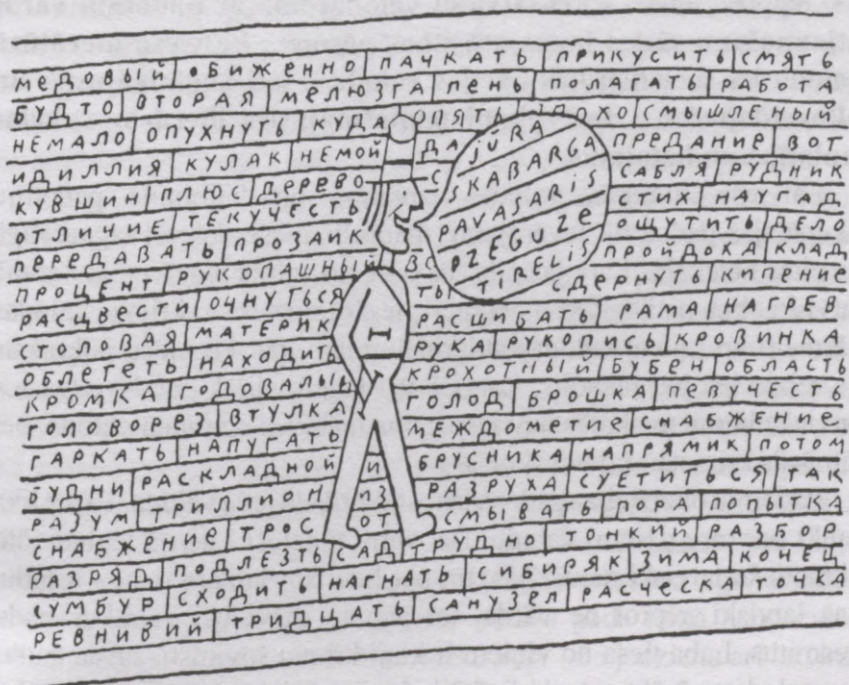 МЕДОВЫЙ ОБИЖЕННО ПАЧКАТЬ ПРИКУСИТЬ СМЯТЬ
БУДТО ВТОРАЯ МЕЛЮЗГА ПЕНЬ ПОЛАГАТЬ РАБОТА
НЕМАЛО ОПУХНУТЬ КУДА ОПЯТЬ ПЛОХО СМЫШЛЕНЫЙ
ИДИЛЛИЯ КУЛАК НЕМОЙ ДА ПРЕДАНИЕ ВОТ
КУВШИН ПЛЮС ДЕРЕВО С САБЛЯ РУДНИК
ОТЛИЧИЕ ТЕКУЧЕСТЬ СТИХ НАУГАД
ПЕРЕДАВАТЬ ПРОЗАИК ОЩУТИТЬ ДЕЛО
ПРОЦЕНТ РУКОПАШНЫЙ ВО ПРОЙДОХА КЛАД
РАСЦВЕСТИ ОЧНУТЬСЯ ТЫ СДЕРНУТЬ КИПЕНИЕ
МАТЕРИК РАСШИБАТЬ РАМА НАГРЕВ
ОБЛЕТЕТЬ НАХОДИТЬ РУКА РУКОПИСЬ КРОВИНКА
КРОМКА ГОДОВАЛЫЙ КРОХОТНЫЙ БУБЕН ОБЛАСТЬ
ГОЛОВОРЕЗ ВТУЛКА ГОЛОД БРОШКА ПЕВУЧЕСТЬ
ГАРКАТЬ НАПУГАТЬ МЕЖДОМЕТИЕ СНАБЖЕНИЕ
БУДНИ РАСКЛАДНОЙ И БРУСНИКА НАПРЯМИК ПОТОМ
РАЗУМ ТРИЛЛИОН ИЗ РАЗРУХА СУЕТИТЬСЯ ТАК
СНАБЖЕНИЕ ТРОС ОТ СМЫВАТЬ ПОКА ПОПЫТКА
РАЗРЯД ПОДЛЕЗТЬ САД ТРУДНО ТОНКИЙ РАЗБОР
СУМБУР СХОДИТЬ ПИНАТЬ СИБИРЯК ЗИМА КОНЕЦ
РЕВНИВЫЙ ТРИДЦАТЬ САНУЗЕЛ РАСЧЕСКА ТОЧКА
JŪRA
SKABARGA
PAVASARIS
DZEGUZE
TĪRELIS